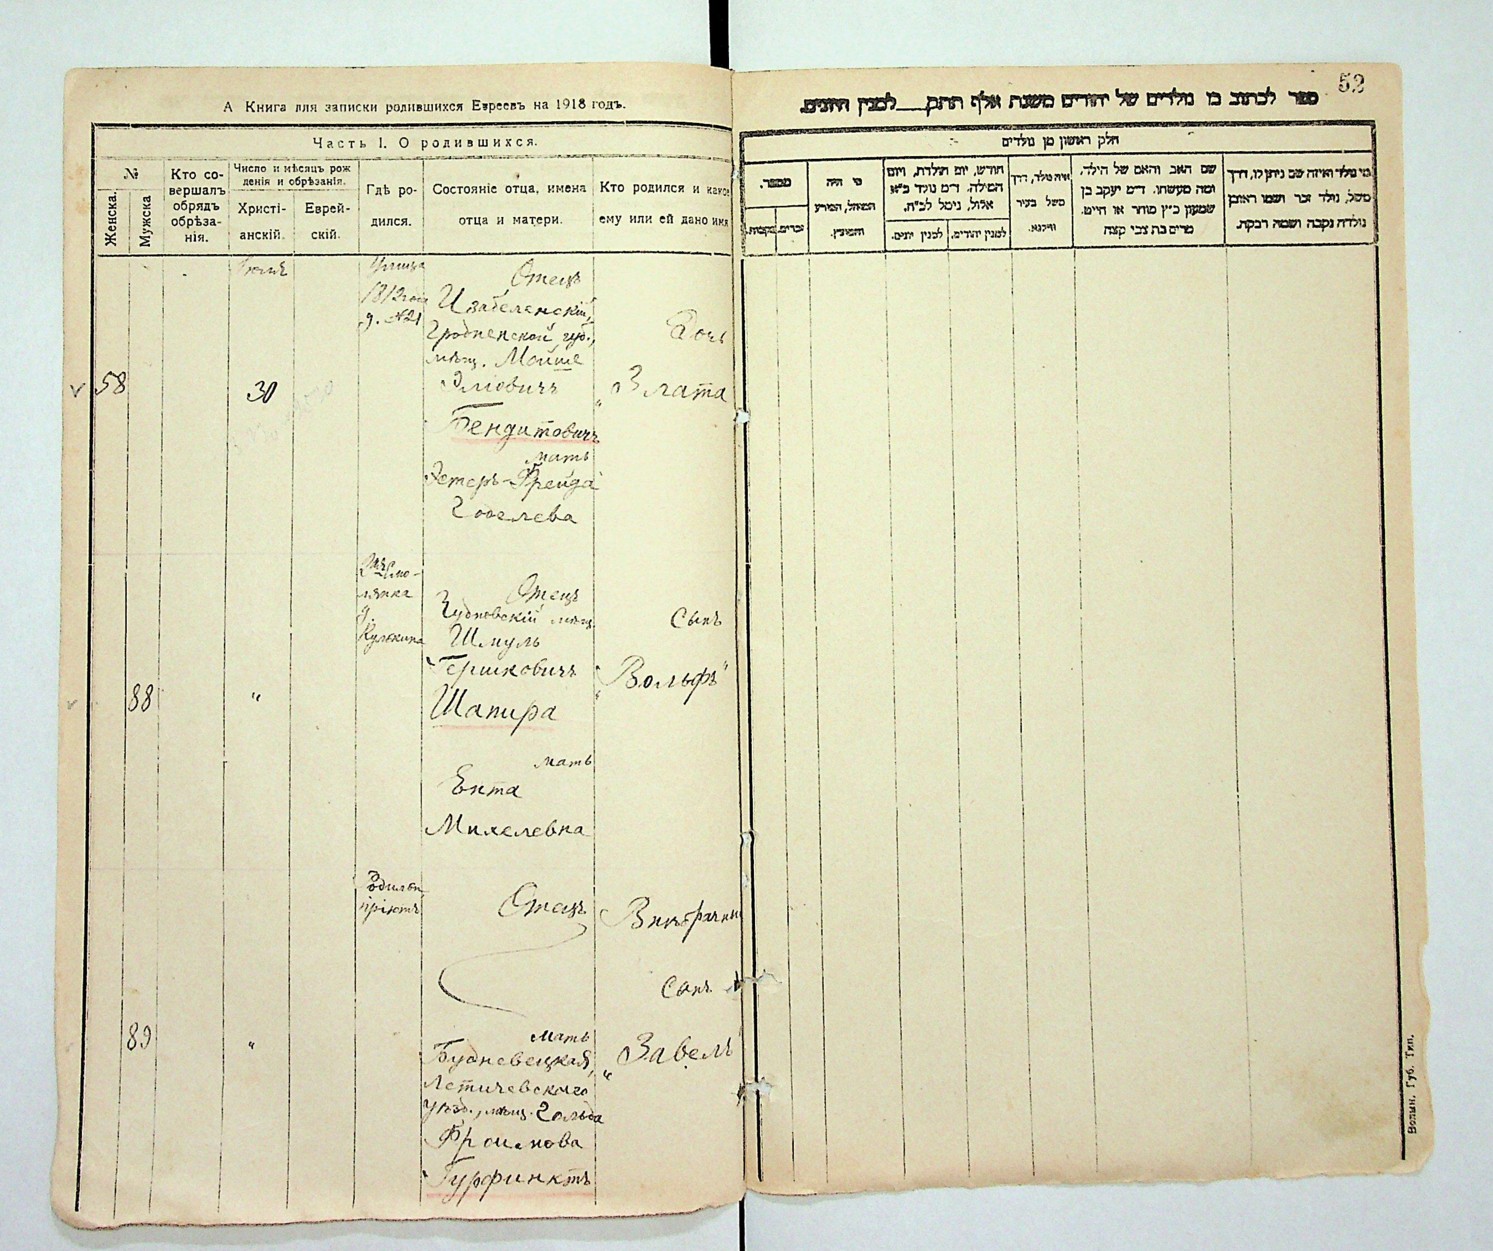 А Книга для записки родившихся Евреевъ на 1918 годъ.
Часть I. О родившихся.
№
Женска.
Мужска
Кто со-
вершалъ
обрядъ
обрѣза-
нія.
Число и мѣсяцъ рож
денія и обрѣзанія.
Христі-
анскій.
Еврей-
скій.
Гдѣ ро-
дился.
Состояніе отца, имена
отца и матери.
Кто родился и какое
ему или ей дано имя
58
30
Улица
1812 года
д. №21
Отецъ
Изабелинскій,
Гродненской губ.,
мѣщ. Мойше
Эліовичъ
Бендитовичъ
мать
Эстеръ-Фрейда
Дочь
„Злата
88
„
Отецъ
Чудновскій мѣщ.
Шмуль
Гершковичъ
Шапира
мать
Ента
Михелевна
Сынъ
„Вольфъ"
89
„
Родильн.
пріютъ
Отецъ
мать
Летичевскаго
уѣзд., мѣщ. Гольда
Фроимова
Гурфинкель
Внѣбрачный
Сынъ
„Завель
52
ספר לכתוב בו נולדים של יהודים משנת אלף תתק___ למנין היונים.
חלק ראשון מן נולדים
מספר.
נקבות.
זכרים.
מי היה
המוהל, הפורע
והמוצץ.
חודש, יום הולדת, ויום
המילה. ד״מ נולד כ״א
אלול, נימל לכ״ח.
למנין יונים.
למנין יהודים.
איה נולד, דרך
משל בעיר
ווילנא.
שם האב והאם של הילד,
ומה מעשהו. ד״מ יעקב בן
שמעון כ״ץ סוחר או חייט.
מרים בת צבי קצח
מי נולד ואיזה שם ניתן לו, דרך
משל, נולד זכר ושמו ראובן
נולדה נקבה ושמה רבקה.
Волын. Губ. Тип.